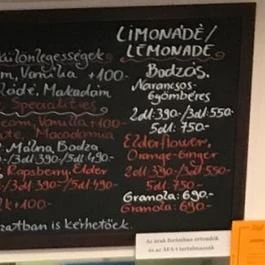 különlegességek
Vanília +100-
Makadám
Specialities
Vanilla +100
Macadamia
Málna, Bodza
/3dl:390-/5dl:490-
Raspberry, Elder
/3dl:390-/5dl:490-
+100-
is kérhetőek.
LIMONÁDÉ/
LEMONADE
Bodzás,
Narancsos-
Gyömbéres
2dl:390-/3dl:550-
5dl: 750-
Elderflower,
Orange-Ginger
2dl:390-/3dl:550-
5dl: 750-
Granola: 690-
Granola: 690-
Az árak forintban értendők
és az ÁFA-t tartalmazzák